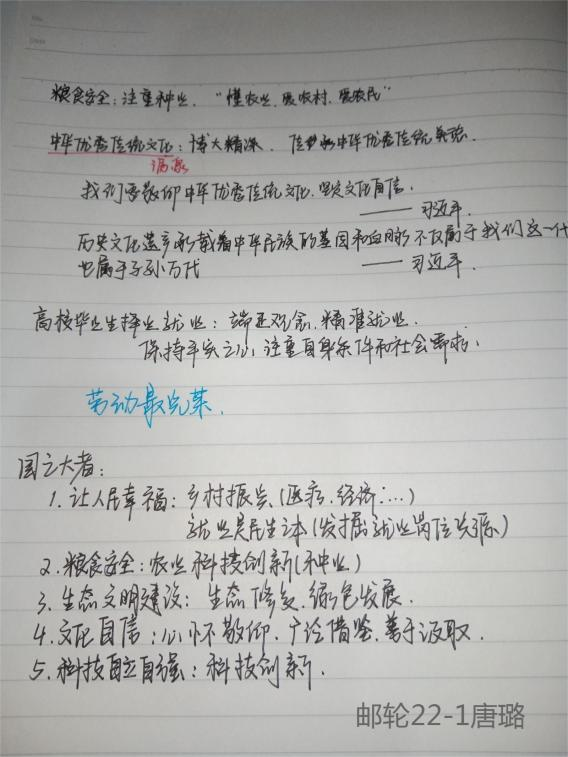 粮食安全：注重种业．“懂农业．爱农村．爱农民”
中华优秀传统文化：博大精深．传承中华优秀传统美德．
我们要敬仰中华优秀传统文化．坚定文化自信．
—— 习近平．
历史文化遗产承载着中华民族的基因和血脉．不仅属于我们这一代
也属于子孙万代 —— 习近平．
高校毕业生择业就业：端正观念．精准就业．
保持平实之心，注重自身条件和社会需求；
劳动最光荣．
国之大者：
1．让人民幸福：乡村振兴（医疗．经济…）
就业是民生之本（发掘就业岗位资源）
2．粮食安全：农业科技创新（种业）
3．生态文明建设：生态修复．绿色发展．
4．文化自信：心怀敬仰．广论借鉴．善于汲取．
5．科技自立自强：科技创新．
邮轮22-1唐璐